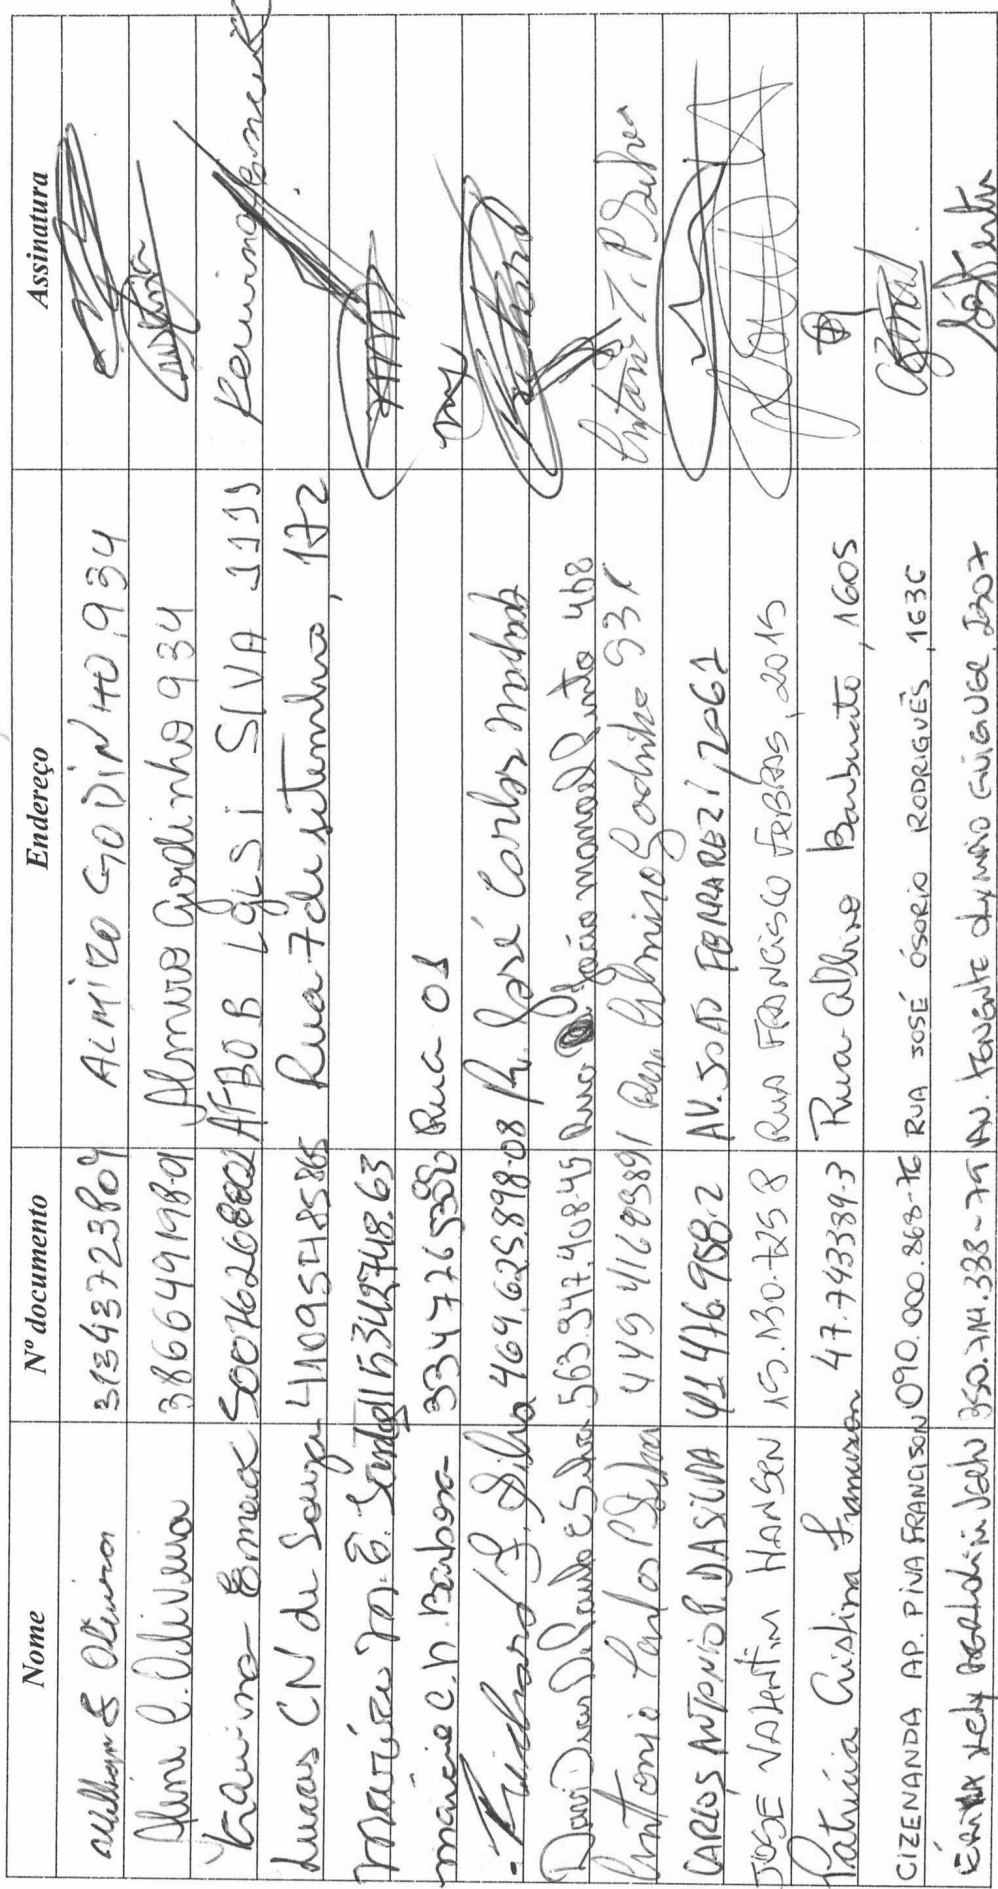 Nome Nº documento Endereço Assinatura
Oliveira 31343723809 ALMIRO GODINHO, 934
Aline C. Oliveira 38664919890 Almiro Godinho 934
Ermack AFBOB SILVA 1119
Lucas CN de Souza 41095485865 Rua 7 de setembro, 172
Maurício M. E. 115.342748.63
márcia C. N. Barbosa 33477265380 Rua 01
Richard F. Silva 469.625.898-08 R. José Carlos
Davi de Paulo e Silva 563.947.408-45 Rua João manoel 468
Antonio Carlos P Silva 449 4168389 / Rua Almiro Godinho 931 Antonio P Silva
CARLOS ANTONIO P. DA SILVA 41 476.958-2 AV. JOÃO FERRAREZI, 2061
JOSE VALENTIM HANSEN 15.130.725 8 RUA FRANCISCO FERRAS, 2015
Patrícia Cristina 47.743389-3 Rua Albino Barbuto, 1605
CIZENANDA AP. PIVA FRANCISON 090.000.868-76 RUA JOSÉ ÓSORIO RODRIGUÊS, 1636
350.714.338-79 AV. TENENTE OLYMPIO GUIGUER, 2307